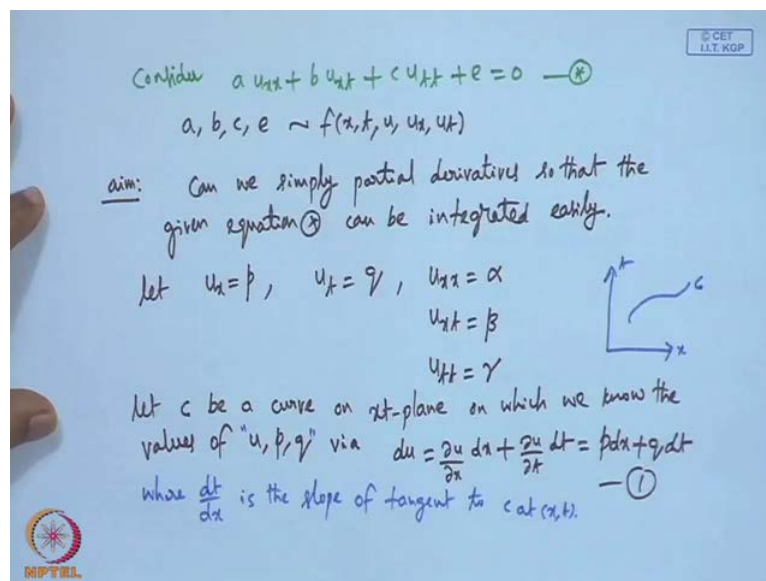 © CET
I.I.T. KGP
Consider a uxx + b uxt + c utt + e = 0 —(*)
a, b, c, e ~ f(x, t, u, ux, ut)
aim: Can we simply partial derivatives so that the
given equation (*) can be integrated easily.
let ux = p, ut = q, uxx = α
uxt = β
utt = γ
t
c
x
let c be a curve on xt-plane on which we know the
values of "u, p, q" via du = ∂u/∂x dx + ∂u/∂t dt = pdx + q dt
—(1)
where dt/dx is the slope of tangent to c at (x,t).
NPTEL